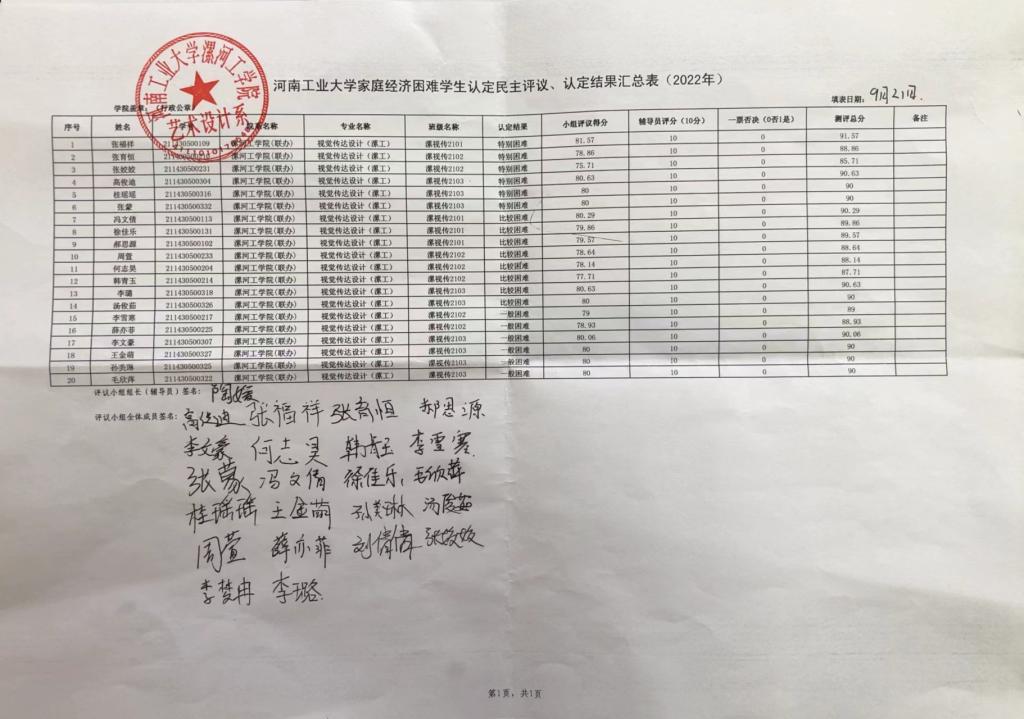 河南工业大学漯河工学院
艺术设计系
河南工业大学家庭经济困难学生认定民主评议、认定结果汇总表（2022年）
学院盖章：（行政公章） 填表日期：9月21日.
序号 姓名 学号 院系名称 专业名称 班级名称 认定结果 小组评议得分 辅导员评分（10分） 一票否决（0否1是） 测评总分 备注
1 张福祥 211430500109 漯河工学院(联办) 视觉传达设计（漯工） 漯视传2101 特别困难 81.57 10 0 91.57
2 张育恒 漯河工学院(联办) 视觉传达设计（漯工） 漯视传2102 特别困难 78.86 10 0 88.86
3 张姣姣 211430500231 漯河工学院(联办) 视觉传达设计（漯工） 漯视传2102 特别困难 75.71 10 0 85.71
4 高俊迪 211430500304 漯河工学院(联办) 视觉传达设计（漯工） 漯视传2103 特别困难 80.63 10 0 90.63
5 桂瑶瑶 211430500316 漯河工学院(联办) 视觉传达设计（漯工） 漯视传2103 特别困难 80 10 0 90
6 张蒙 211430500332 漯河工学院(联办) 视觉传达设计（漯工） 漯视传2103 特别困难 80 10 0 90
7 冯文倩 211430500113 漯河工学院(联办) 视觉传达设计（漯工） 漯视传2101 比较困难 80.29 10 0 90.29
8 徐佳乐 211430500131 漯河工学院(联办) 视觉传达设计（漯工） 漯视传2101 比较困难 79.86 10 0 89.86
9 郝恩源 211430500102 漯河工学院(联办) 视觉传达设计（漯工） 漯视传2101 比较困难 79.57 10 0 89.57
10 周萱 211430500233 漯河工学院(联办) 视觉传达设计（漯工） 漯视传2102 比较困难 78.64 10 0 88.64
11 何志昊 211430500204 漯河工学院(联办) 视觉传达设计（漯工） 漯视传2102 比较困难 78.14 10 0 88.14
12 韩青玉 211430500214 漯河工学院(联办) 视觉传达设计（漯工） 漯视传2102 比较困难 77.71 10 0 87.71
13 李璐 211430500318 漯河工学院(联办) 视觉传达设计（漯工） 漯视传2103 比较困难 80.63 10 0 90.63
14 汤俊茹 211430500326 漯河工学院(联办) 视觉传达设计（漯工） 漯视传2103 比较困难 80 10 0 90
15 李雪寒 211430500217 漯河工学院(联办) 视觉传达设计（漯工） 漯视传2102 一般困难 79 10 0 89
16 薛亦菲 211430500225 漯河工学院(联办) 视觉传达设计（漯工） 漯视传2102 一般困难 78.93 10 0 88.93
17 李文豪 211430500307 漯河工学院(联办) 视觉传达设计（漯工） 漯视传2103 一般困难 80.06 10 0 90.06
18 王金萌 211430500327 漯河工学院(联办) 视觉传达设计（漯工） 漯视传2103 一般困难 80 10 0 90
19 孙美琳 211430500325 漯河工学院(联办) 视觉传达设计（漯工） 漯视传2103 一般困难 80 10 0 90
20 毛欣萍 211430500322 漯河工学院(联办) 视觉传达设计（漯工） 漯视传2103 一般困难 80 10 0 90
评议小组组长（辅导员）签名：陶媛
评议小组全体成员签名：高俊迪 张福祥 张育恒 郝恩源
李文豪 何志昊 韩青玉 李雪寒
张蒙 冯文倩 徐佳乐 毛欣萍
桂瑶瑶 王金萌 孙美琳 汤俊茹
周萱 薛亦菲 刘倩倩 张姣姣
李梦冉 李璐
第1页，共1页